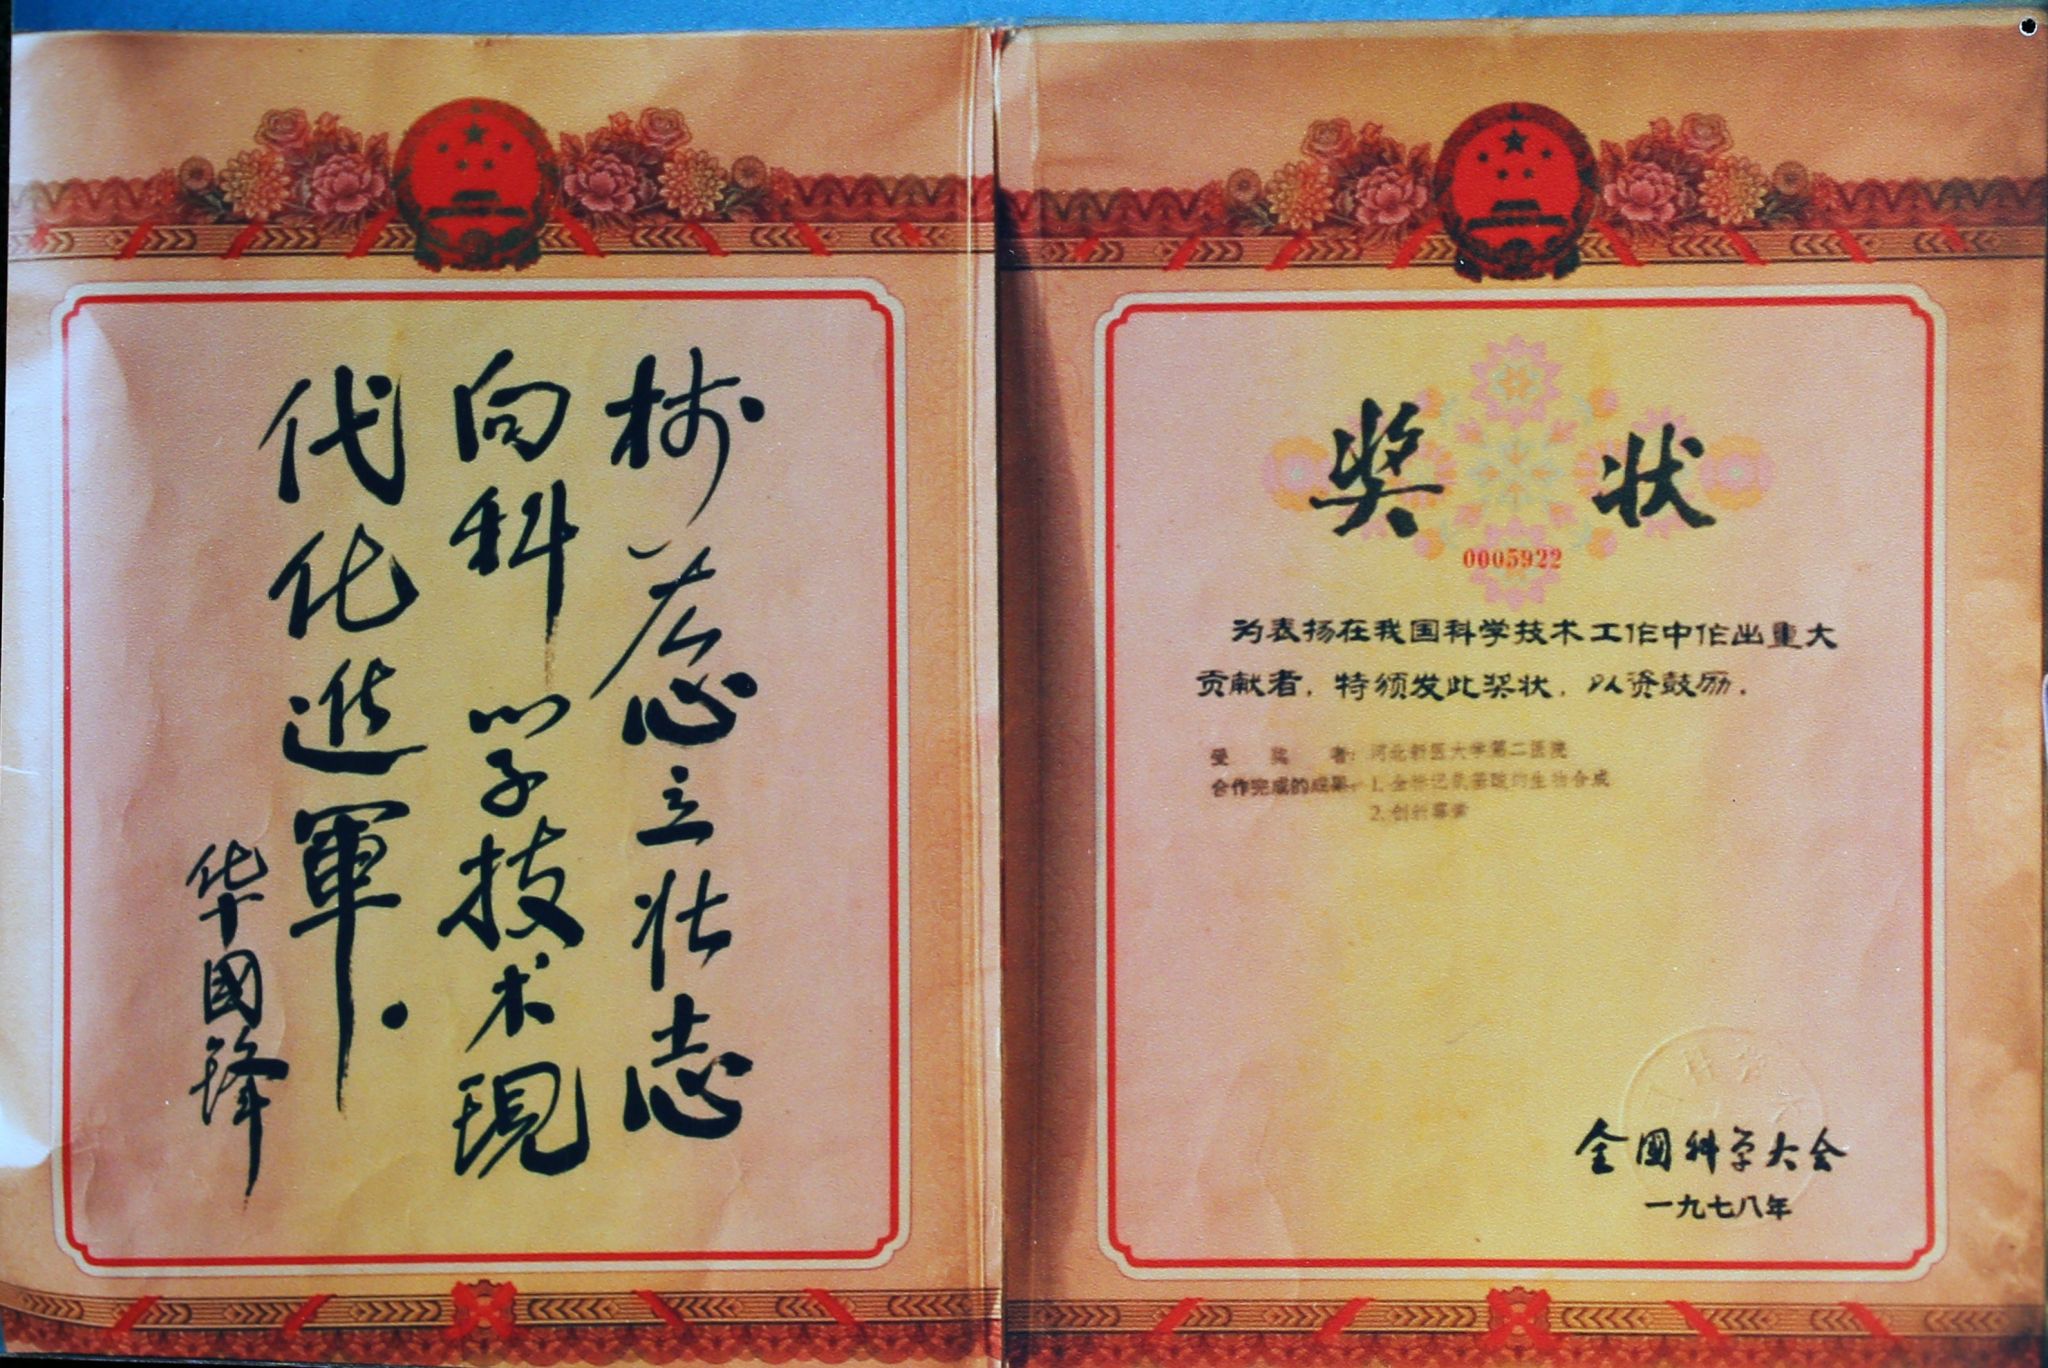 树雄心立壮志
向科学技术現
代化進軍.
华國锋
奖状
0005922
为表扬在我国科学技术工作中作出重大
贡献者，特颁发此奖状，以资鼓励。
受奖者：河北新医大学第二医院
合作完成的成果：1.全标记氨基酸的生物合成
2.创新霉素
全國科学大会
一九七八年